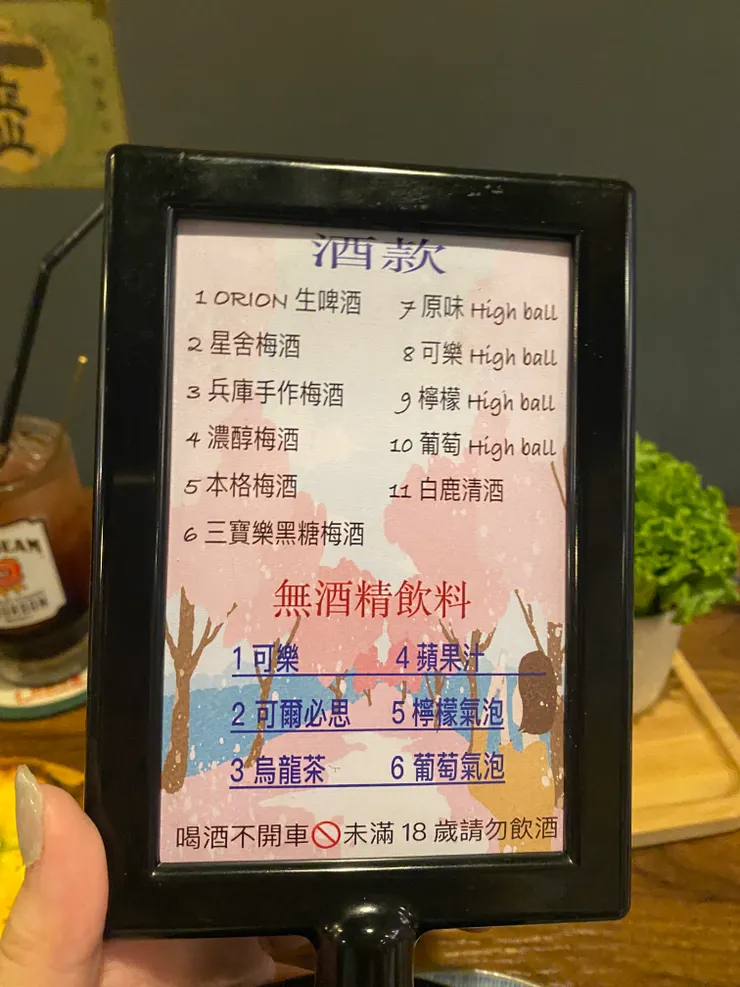 酒款
1 ORION 生啤酒
2 星舍梅酒
3 兵庫手作梅酒
4 濃醇梅酒
5 本格梅酒
6 三寶樂黑糖梅酒
7 原味 High ball
8 可樂 High ball
9 檸檬 High ball
10 葡萄 High ball
11 白鹿清酒
無酒精飲料
1 可樂
2 可爾必思
3 烏龍茶
4 蘋果汁
5 檸檬氣泡
6 葡萄氣泡
喝酒不開車🚫未滿 18 歲請勿飲酒
BEAM